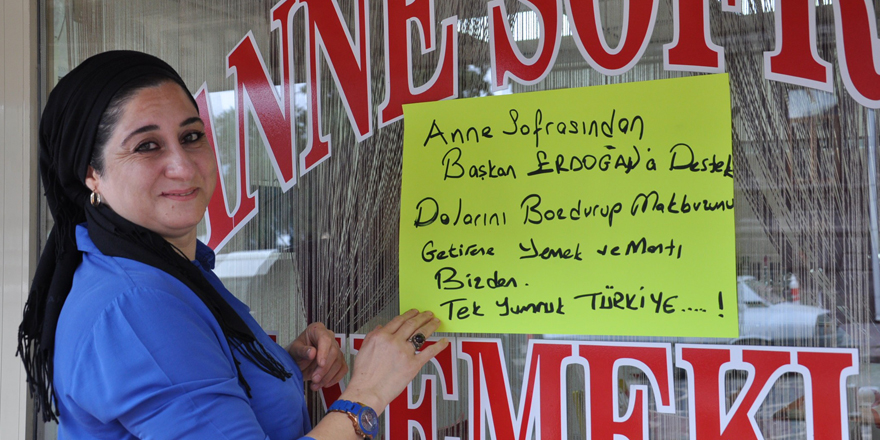 ANNE SOFRA
Anne Sofrasından
Başkan ERDOĞAN'a Destek
Dolarını Bozdurup Makbuzunu
Getirene Yemek ve Mantı
Bizden.
Tek Yumruk TÜRKİYE....!
YEMEKL